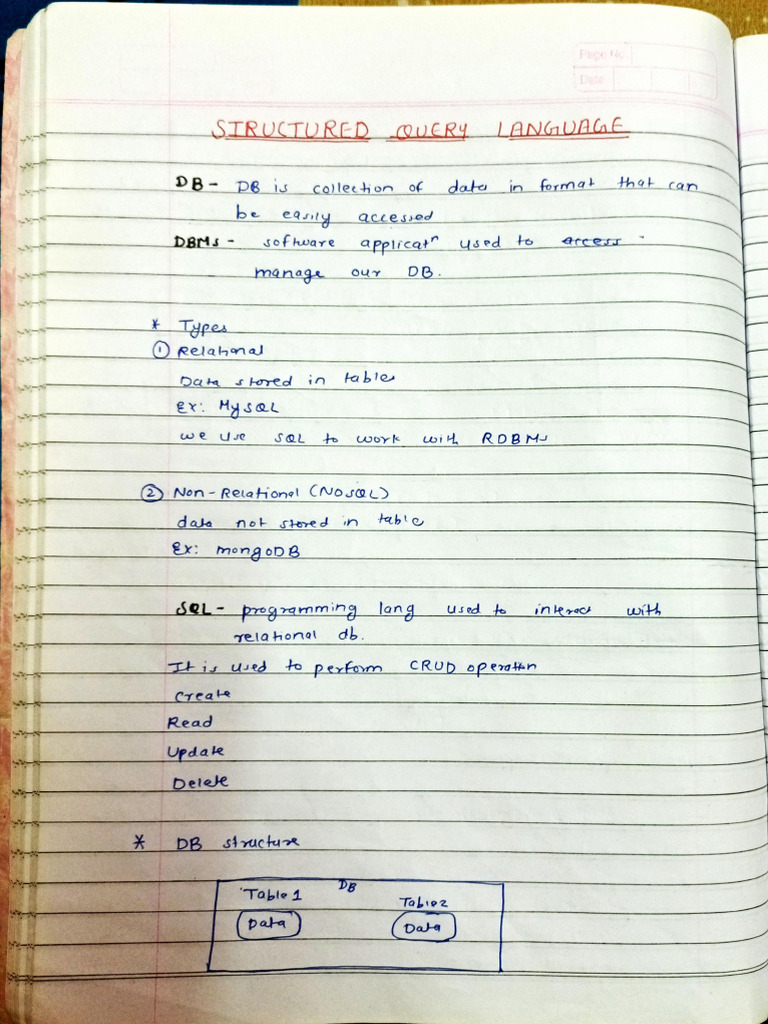 Page No
Date
STRUCTURED QUERY LANGUAGE
DB - DB is collection of data in format that can
be easily accessed
DBMS - software applicatn used to access
manage our DB.
* Types
① Relational
Data stored in table
Ex: MySQL
we use SQL to work with RDBMS
② Non-Relational (NOSQL)
data not stored in table
Ex: mongoDB
SQL - programming lang used to interact with
relational db.
It is used to perform CRUD operation
Create
Read
Update
Delete
* DB structure
DB
Table 1
Table 2
Data
Data